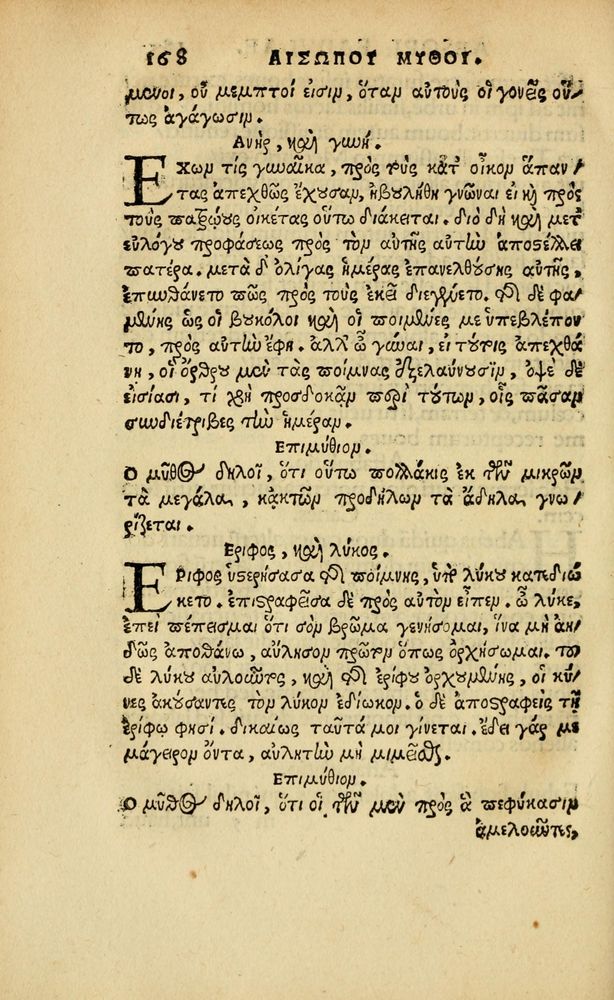 168 ΑΙΣΩΠΟΥ ΜΥΘΟΙ.
μενοι, οὐ μεμπτοί εἰσιν, ὅταν αὐτοὺς οἱ γονεῖς οὕ/
τως ἀγάγωσιν.
Ανὴρ, καὶ γυνή.
ΕΧων τίς γυναῖκα, πρὸς τοὺς κατ' οἶκον ἅπαν/
τας ἀπεχθῶς ἔχουσαν, ἠβουλήθη γνῶναι εἰ καὶ πρὸς
τοὺς παρῴους οἰκέτας οὕτω διάκειται. διὸ δὴ καὶ μετ'
εὐλόγου προφάσεως πρὸς τὸν αὐτῆς αὐτὴν ἀποστέλλει
πατέρα. μετὰ δ' ὀλίγας ἡμέρας ἐπανελθούσης αὐτῆς,
ἐπυνθάνετο πῶς πρὸς τοὺς ἐκεῖ διεγένετο. τῆς δὲ φα/
μένης ὡς οἱ βουκόλοι καὶ οἱ ποιμένες με ὑπεβλέπον
το, πρὸς αὐτὴν ἔφη. ἀλλ' ὦ γύναι, εἰ τούτοις ἀπεχθά/
νῃ, οἱ ὄρθρου μὲν τὰς ποίμνας ἐξελαύνουσιν, ὀψὲ δὲ
εἰσίασι, τί χρὴ προσδοκᾶν περὶ τούτων, οἷς πᾶσαν
συνδιέτριβες τὴν ἡμέραν.
Επιμύθιον.
Ο μῦθος δηλοῖ, ὅτι οὕτω πολλάκις ἐκ τῶν μικρῶν
τὰ μεγάλα, κἀκ τῶν προδήλων τὰ ἄδηλα γνω/
ρίζεται.
Εριφος, καὶ λύκος.
ΕΡιφος ὑστερήσασα τῆς ποίμνης, ὑπὸ λύκου κατεδιώ
κετο. ἐπιστραφεῖσα δὲ πρὸς αὐτὸν εἶπεν. ὦ λύκε,
ἐπεὶ πέπεισμαι ὅτι σὸν βρῶμα γενήσομαι, ἵνα μὴ ἀη/
δῶς ἀποθάνω, αὔλησον πρῶτον ὅπως ὀρχήσωμαι. τοῦ
δὲ λύκου αὐλοῦντος, καὶ τῆς ἐρίφου ὀρχουμένης, οἱ κύ/
νες ἀκούσαντες τὸν λύκον ἐδίωκον. ὁ δὲ ἀποστραφεὶς τῇ
ἐρίφῳ φησί. δικαίως ταῦτά μοι γίνεται. ἔδει γάρ με
μάγειρον ὄντα, αὐλητὴν μὴ μιμεῖσθαι.
Επιμύθιον.
Ο μῦθος δηλοῖ, ὅτι οἱ τῶν μὲν πρὸς ἃ πεφύκασιν
ἀμελοῦντες,